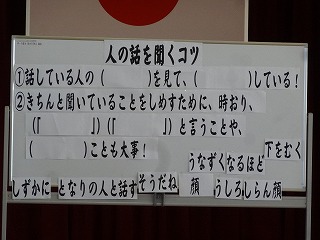 人の話を聞くコツ
①話している人の（　　　）を見て、（　　　）している！
②きちんと聞いていることをしめすために、時おり、
（『　　　』）（『　　　』）と言うことや、
（　　　）ことも大事！
下をむく
うなずく なるほど
しずかに となりの人と話す そうだね 顔 うしろ しらん顔